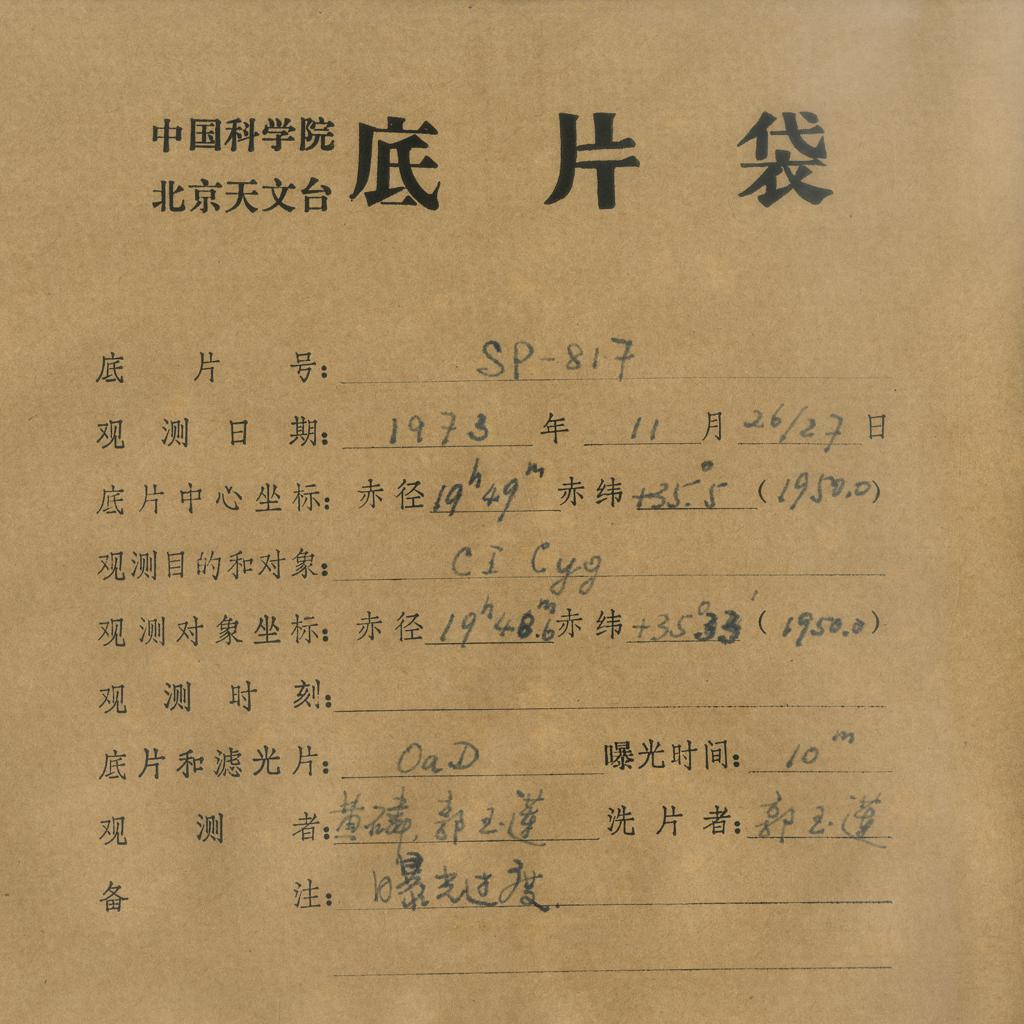 中国科学院
北京天文台
底片袋
底片号: SP-817
观测日期: 1973年 11月 26/27日
底片中心坐标: 赤径 19ʰ49ᵐ 赤纬 +35.°5 (1950.0)
观测目的和对象: CI Cyg
观测对象坐标: 赤径 19ʰ48.ᵐ6 赤纬 +35°33′ (1950.0)
观测时刻:
底片和滤光片: OaD 曝光时间: 10ᵐ
观测者: 黄磷, 郭玉莲 洗片者: 郭玉莲
备注: 曝光过度.